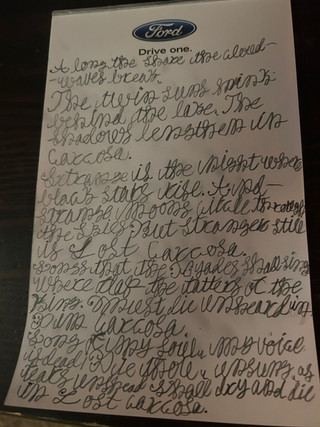 Ford
Drive one.
Along the shore the cloud
waves break.
The twin suns spins
behind the lake. The
shadows lengthen in
Carcosa.
Strange is the night where
black stars rise. And
strange moons circle through
the skies. But stranger still
is Lost Carcosa.
Songs that the Hyades shall sing
where flap the tatters of the
King. Must die unheard in
Dim Carcosa.
Song of my soul, my voice
is dead. Die thou, unsung, as
tears unshed shall dry and die
in Lost Carcosa.